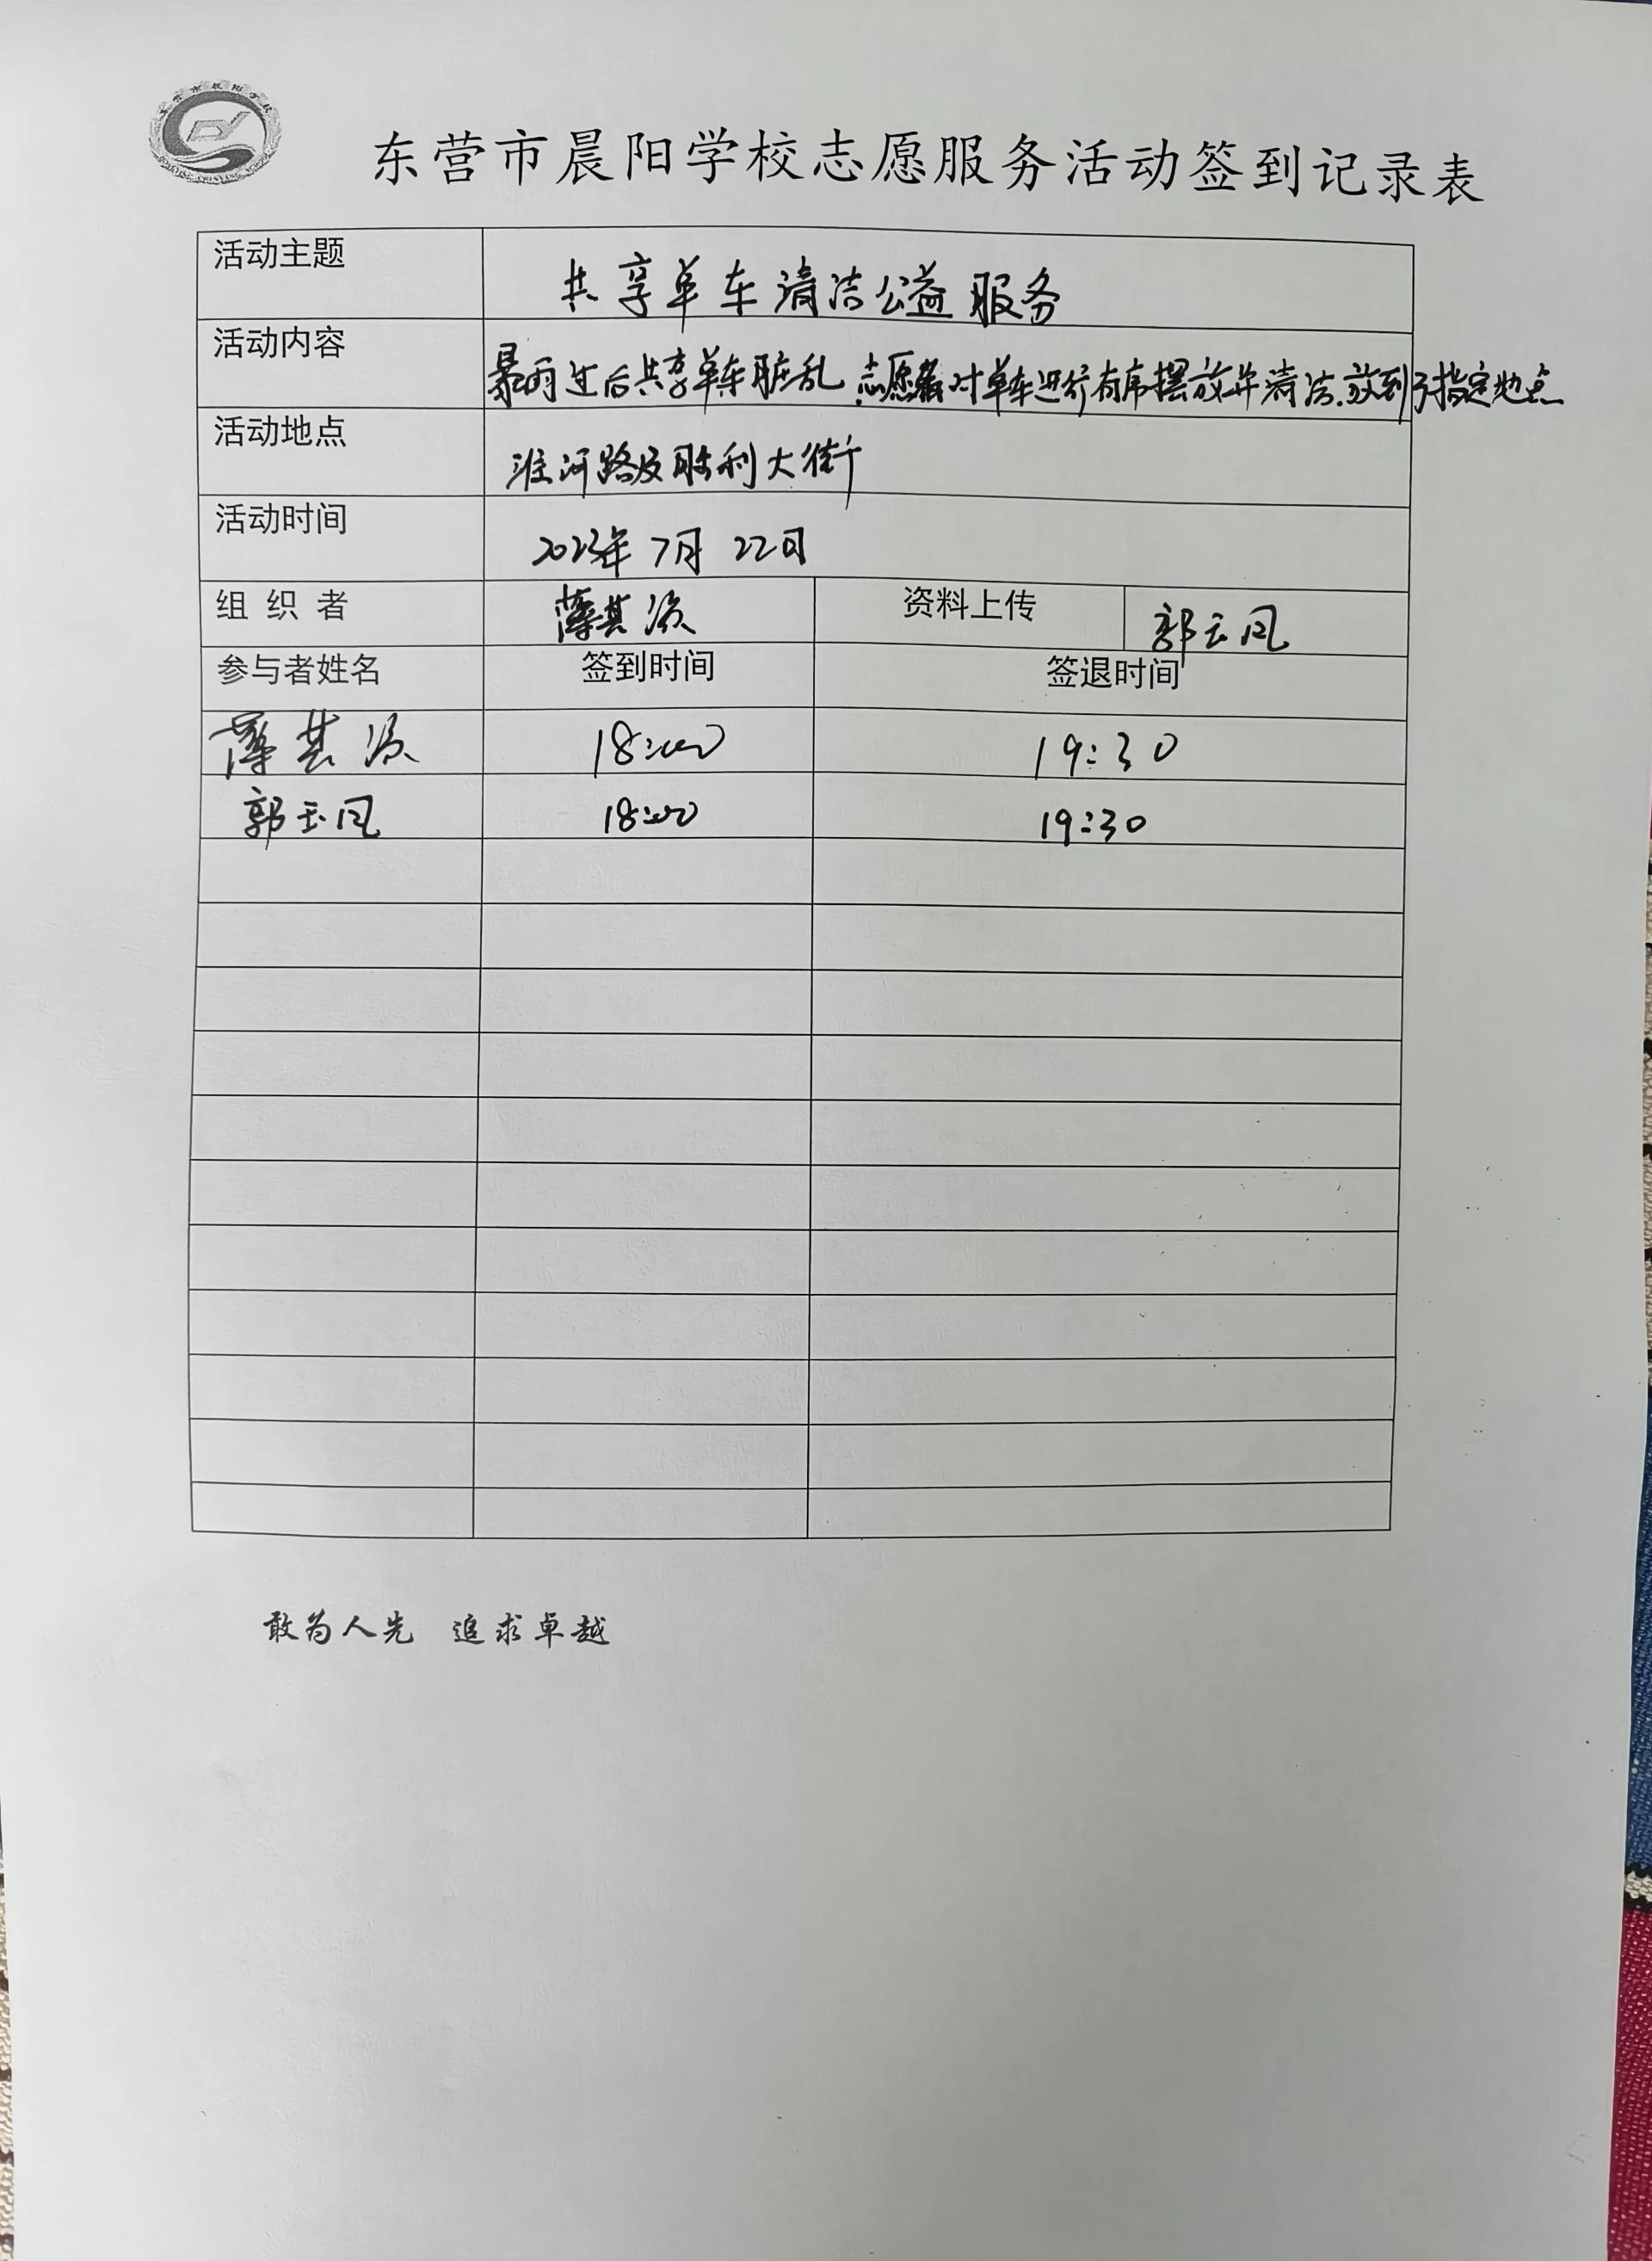 东营市晨阳学校志愿服务活动签到记录表
活动主题 共享单车清洁公益服务
活动内容 暴雨过后共享单车脏乱,志愿者对单车进行有序摆放并清洁,放到了指定地点
活动地点 淮河路及胜利大街
活动时间 2023年7月22日
组织者 薄其 资料上传 郭玉风
参与者姓名 签到时间 签退时间
薄其 18:00 19:30
郭玉风 18:00 19:30
敢为人先 追求卓越